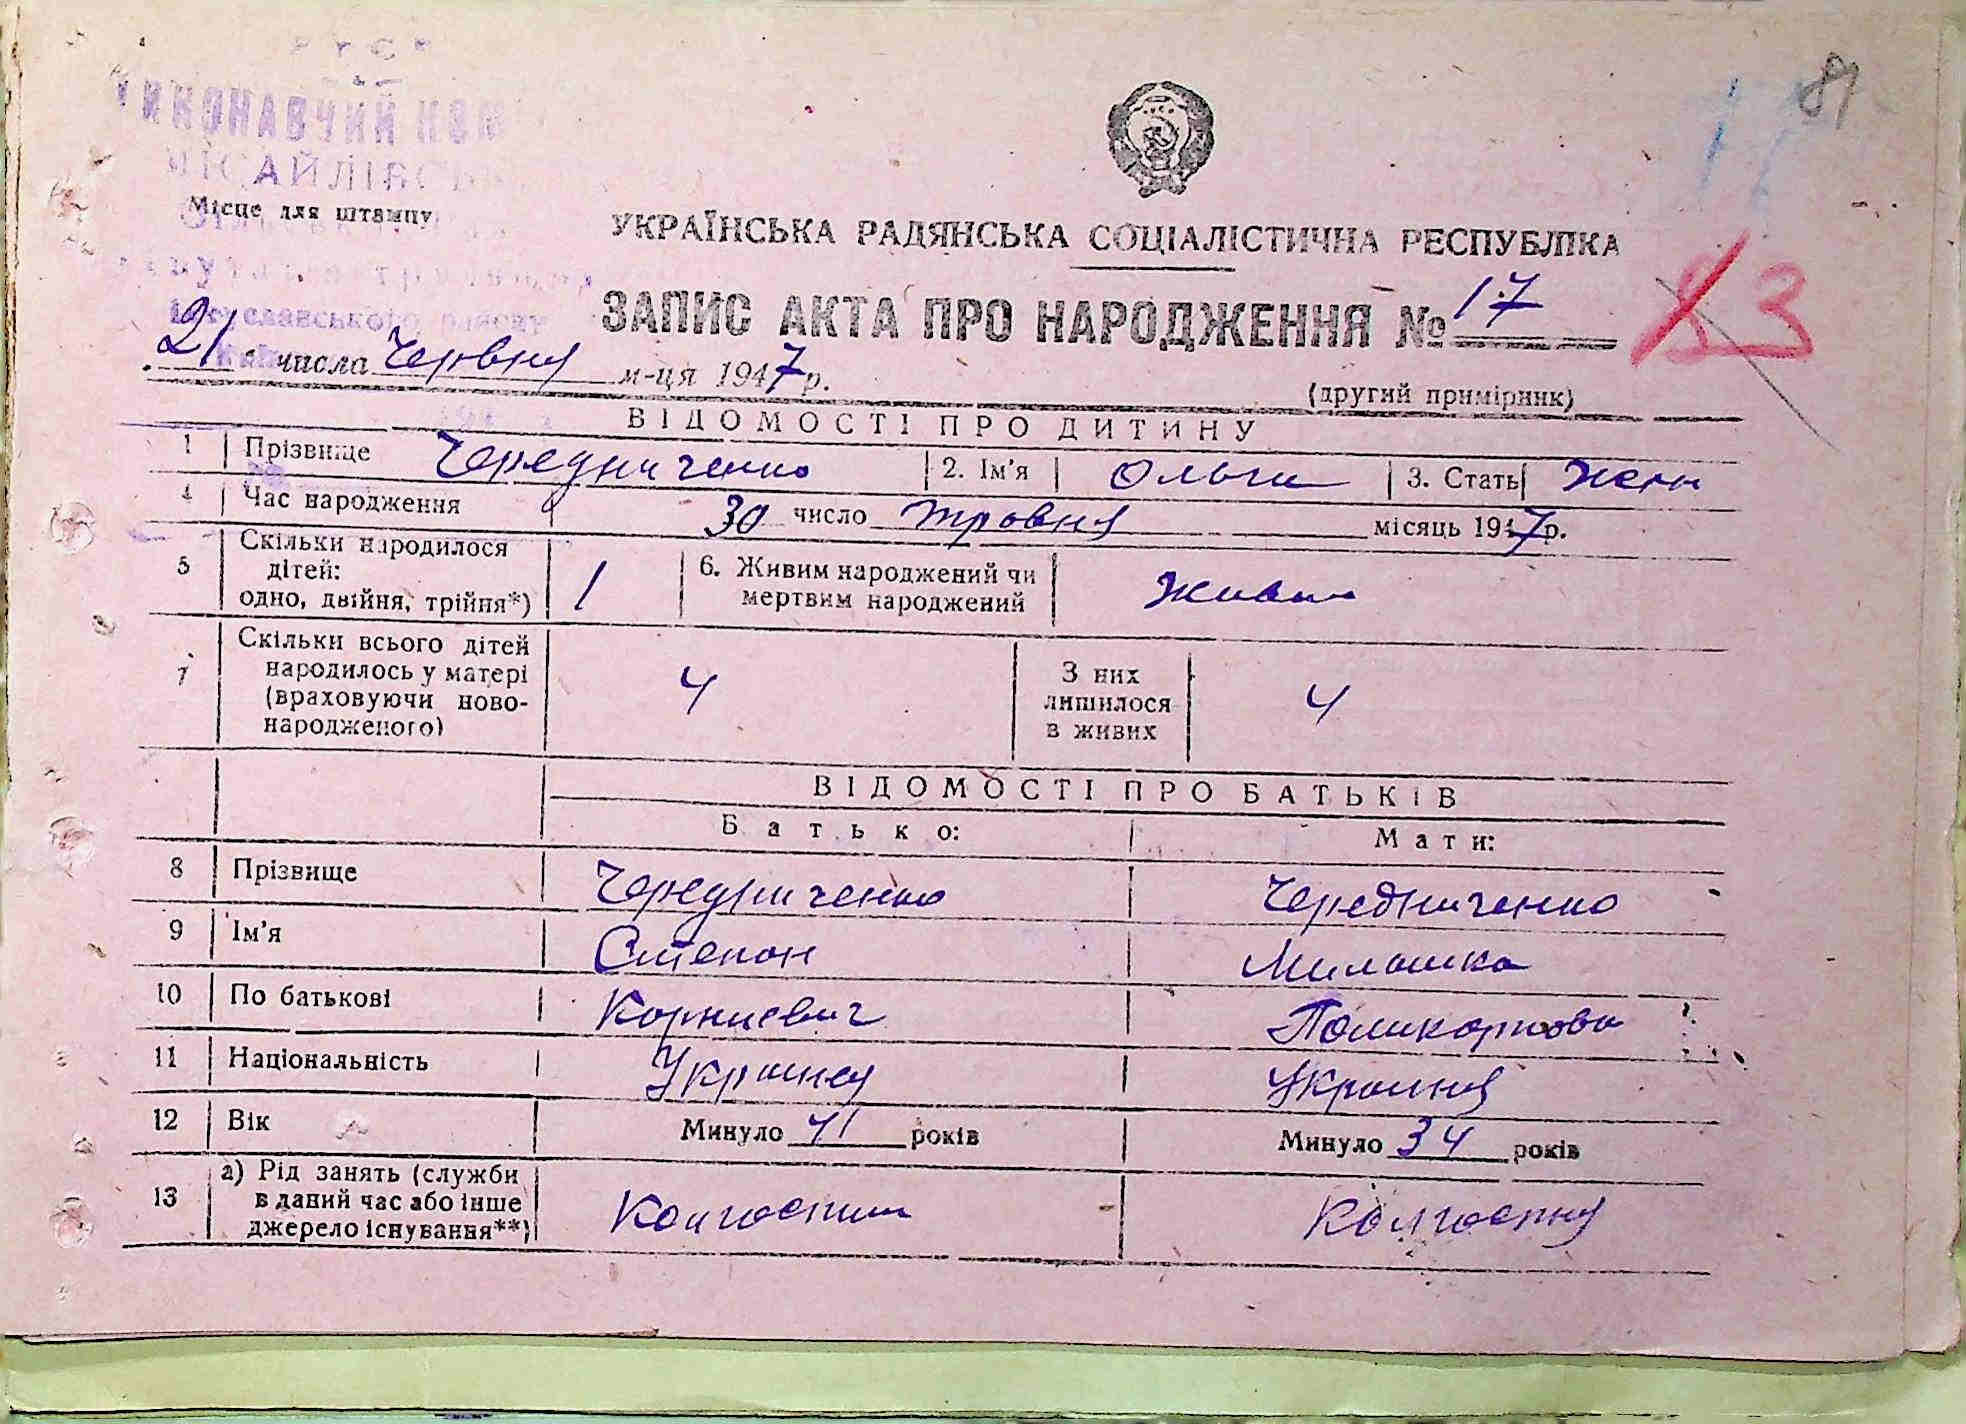 УРСР
ВИКОНАВЧИЙ КОМ
ІСАЙЛІВСЬ
Місце для штампу
81
17
УКРАЇНСЬКА РАДЯНСЬКА СОЦІАЛІСТИЧНА РЕСПУБЛІКА
ЗАПИС АКТА ПРО НАРОДЖЕННЯ № 17
83
21 числа Червня м-ця 1947 р.
(другий примірник)
ВІДОМОСТІ ПРО ДИТИНУ
1 Прізвище Чередниченко 2. Ім'я Ольга 3. Стать Жен
4 Час народження 30 число травня місяць 1947 р.
5 Скільки народилося дітей: одно, двійня, трійня*) 1 6. Живим народжений чи мертвим народжений Живим
7 Скільки всього дітей народилось у матері (враховуючи ново-народженого) 4 З них лишилося в живих 4
ВІДОМОСТІ ПРО БАТЬКІВ
Батько: Мати:
8 Прізвище Чередниченко Чередниченко
9 Ім'я Степан Милашка
10 По батькові Корниевич Поликарповна
11 Національність Украинец Украинка
12 Вік Минуло 41 років Минуло 34 років
13 а) Рід занять (служби в даний час або інше джерело існування**) Колгоспник Колгоспну